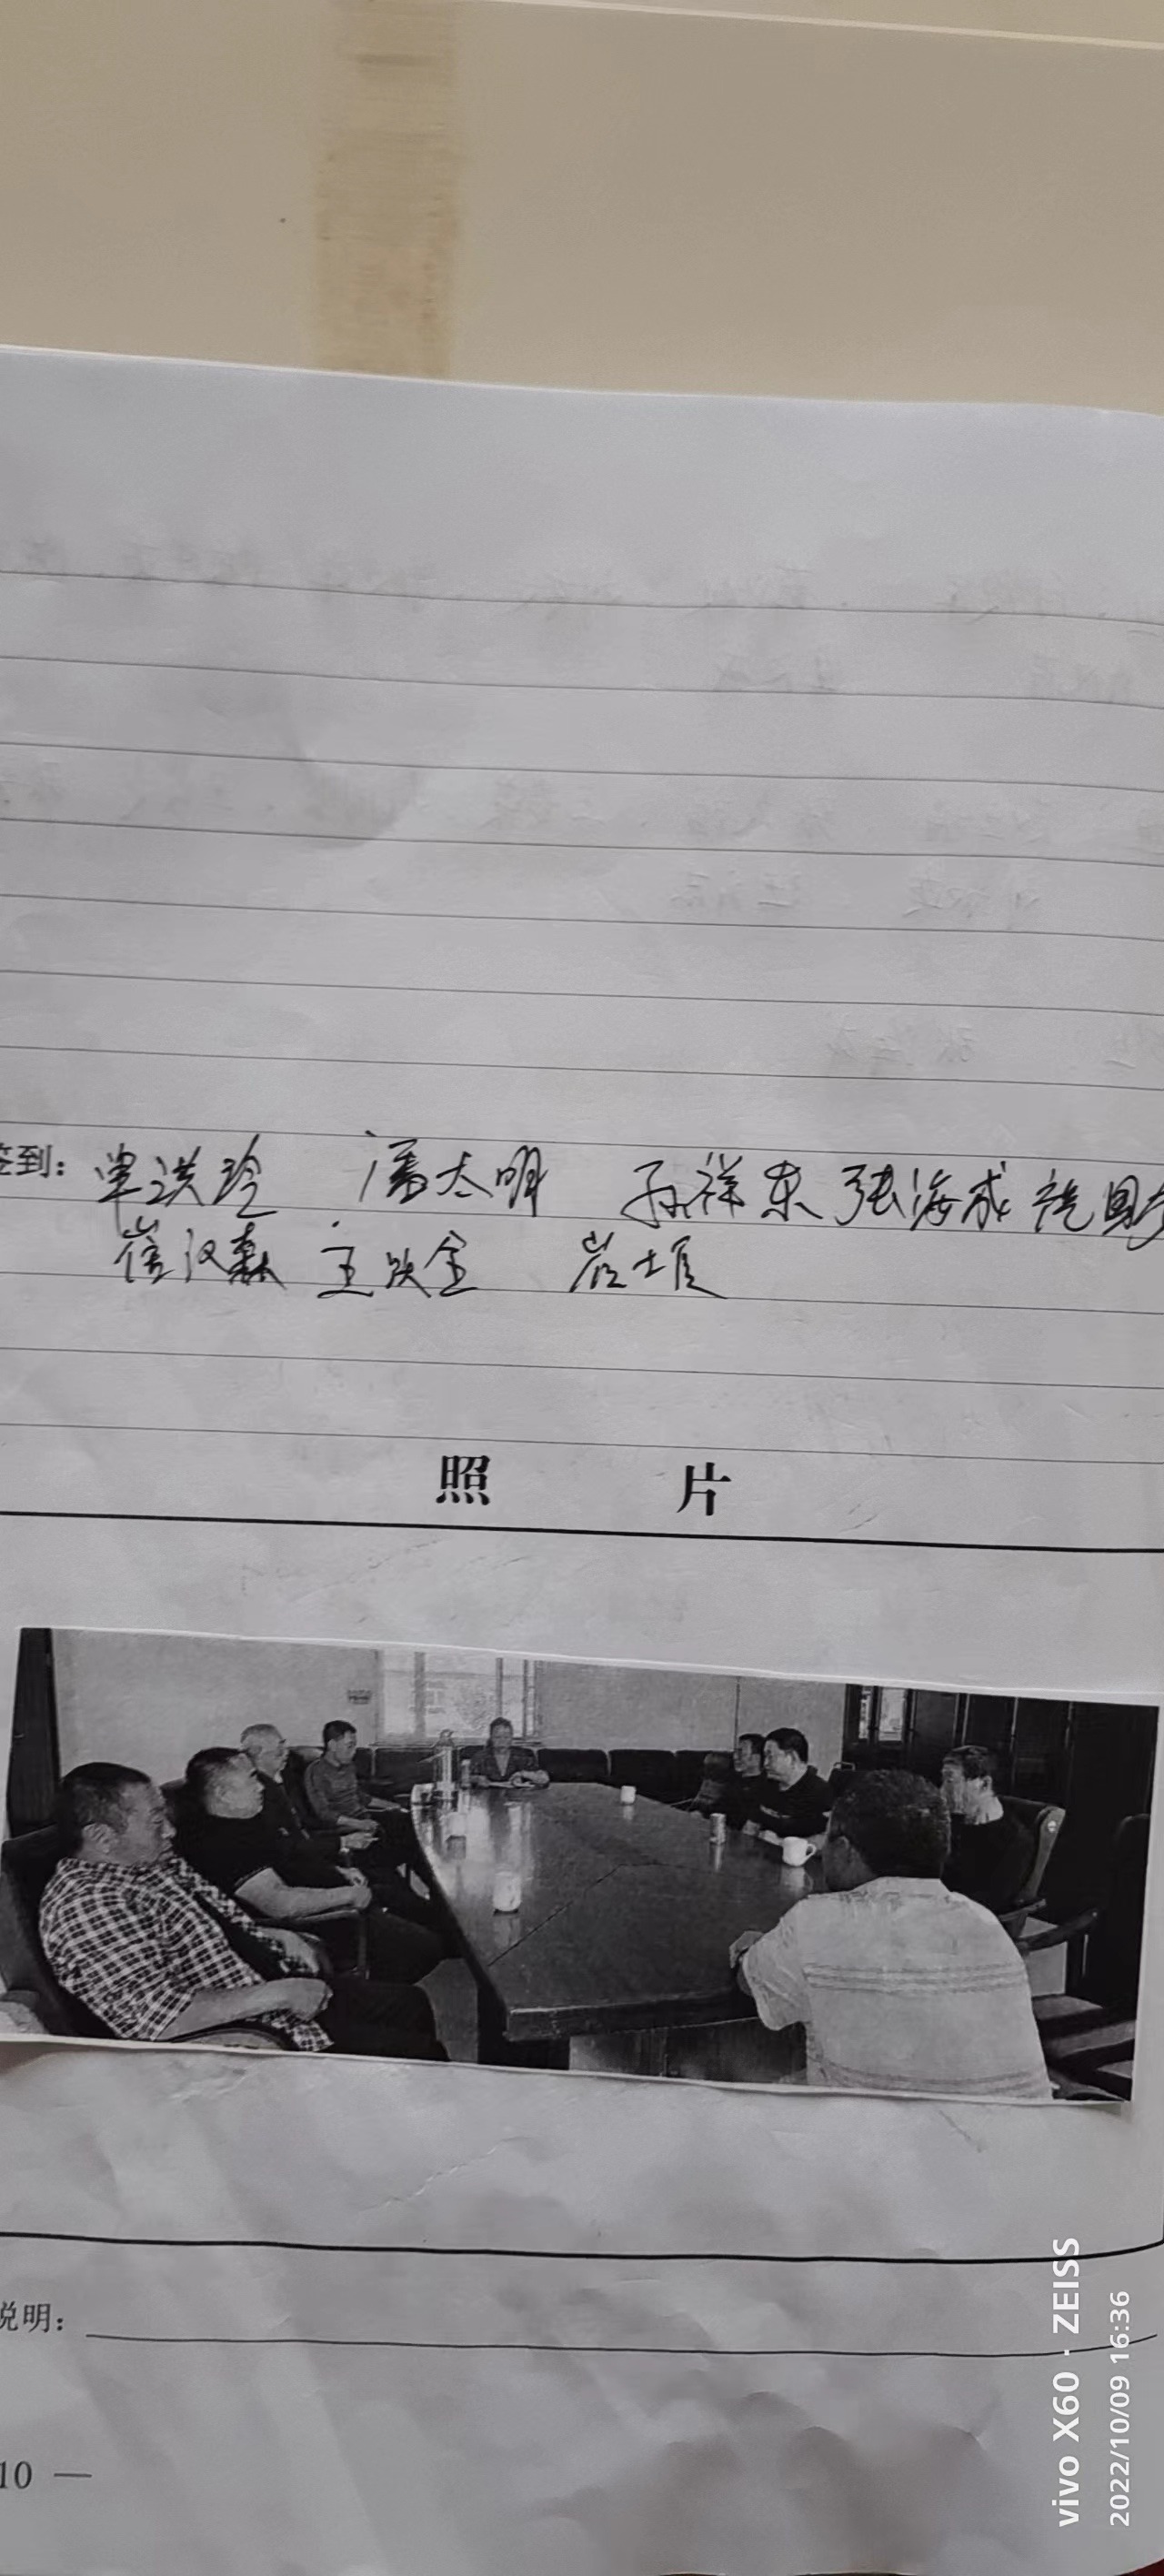 签到: 单洪玲 潘太明 孙祥东 张海成
崔汉森 王跃全
照 片
说明:
10 —
vivo X60 · ZEISS
2022/10/09 16:36